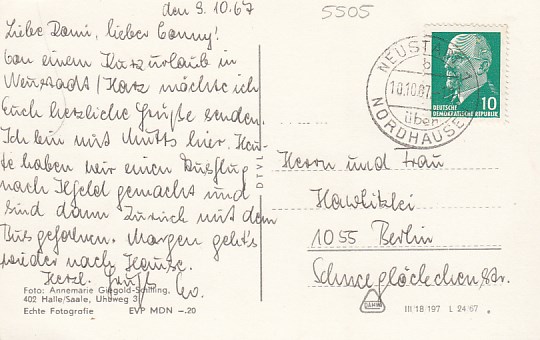 den 9.10.67
5505
Liebe Romi, lieber Conny!
Von einem Kurzurlaub in
Neustadt/Harz möchte ich
Euch herzliche Grüße senden.
Ich bin mit Mutts hier. Heu-
te haben wir einen Ausflug
nach Ilfeld gemacht und
sind dann zurück mit dem
Bus gefahren. Morgen geht's
wieder nach Hause.
Herzl. Gruß
Foto: Annemarie Giegold-Schilling,
402 Halle/Saale, Uhlweg 3
Echte Fotografie EVP MDN –.20
DTVL
NEUSTADT
10.10.67
über
NORDHAUSE
DEUTSCHE
DEMOKRATISCHE REPUBLIK
10
Herrn und Frau
Hawlitzki
1055 Berlin
Schneeglöckchenstr.
III 18 197 L 24 67